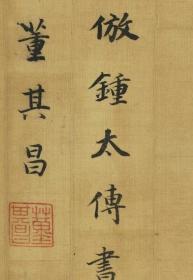 倣鍾太傅書
董其昌